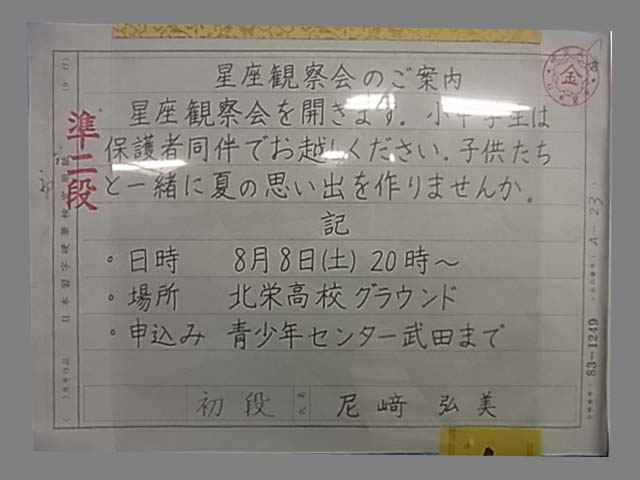 星座観察会のご案内
星座観察会を開きます。小中学生は
保護者同伴でお越しください。子供たち
と一緒に夏の思い出を作りませんか。
記
・日時 8月8日(土) 20時〜
・場所 北栄高校グラウンド
・申込み 青少年センター武田まで
初段 氏名 尼﨑 弘美
準二段
金
日本習字硬筆検定用紙
A-23
83-1249